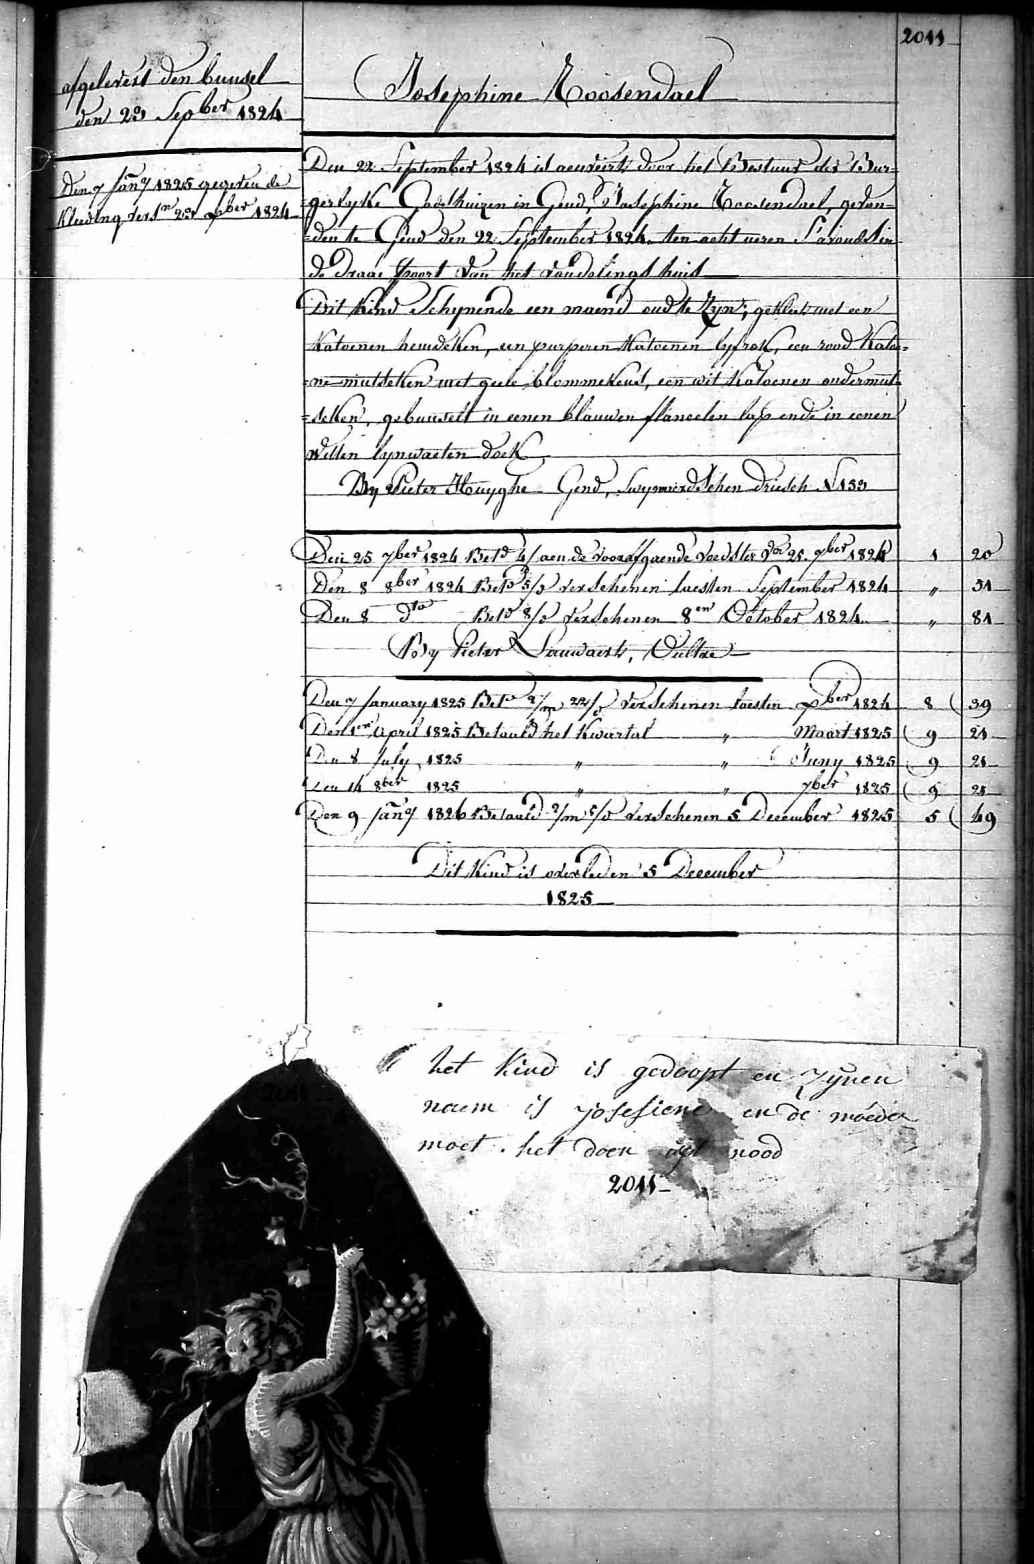 2011
afgelevert den bunsel
den 23 Sepber 1824
Den 7 Jany 1825 gegeven de
Kleeding vers.n 22n xber 1824
Josephine Roosendael
Den 22 September 1824 is aenveirt door het Bestuur der Bur=
=gerlyke Godshuizen in Gend, Josephine Roosendael, gevon=
=den te Gend den 22 September 1824 ten acht ueren S'avonds in
de Draai poort van het vondelings huis
Dit Kind Schynende een maend oud te Zyn; gekleet met een
Katoenen hemdeken, een purperen Katoenen lyfrok, een rood Katoe=
=ne mutseken met geele blommekens, een wit Katoenen ondermut=
=seken, gebunselt in eenen blauwen flanelen lap ende in eenen
Witten lynwaeten doek
By Pieter Huyghe Gend, driesch N 133
Den 25 7ber 1824 Betd 4/ aen de voorafgaende voedster 25. 7ber 1824 1 20
Den 8 8ber 1824 Betd 5/3 verschenen laesten September 1824 " 51
Den 8 Dto Betd 8/3 verschenen 8en October 1824 " 81
By Pieter Lauwaert,
Den 7 January 1825 Betd 2/m 22/3 verschenen laesten xber 1824 8 39
Den 1en April 1825 Betaald het Kwartal " Maart 1825 9 21
Den 8 July 1825 " " Juny 1825 9 21
Den 14 8ber 1825 " " 7ber 1825 9 21
Den 9 Jany 1826 Betaald 2/m 5/3 verschenen 5 December 1825 5 49
Dit Kind is overleden 5 December
1825
het kind is gedoopt en zijnen
naem is josefiene en de moeder
moet het doen uyt nood
2011